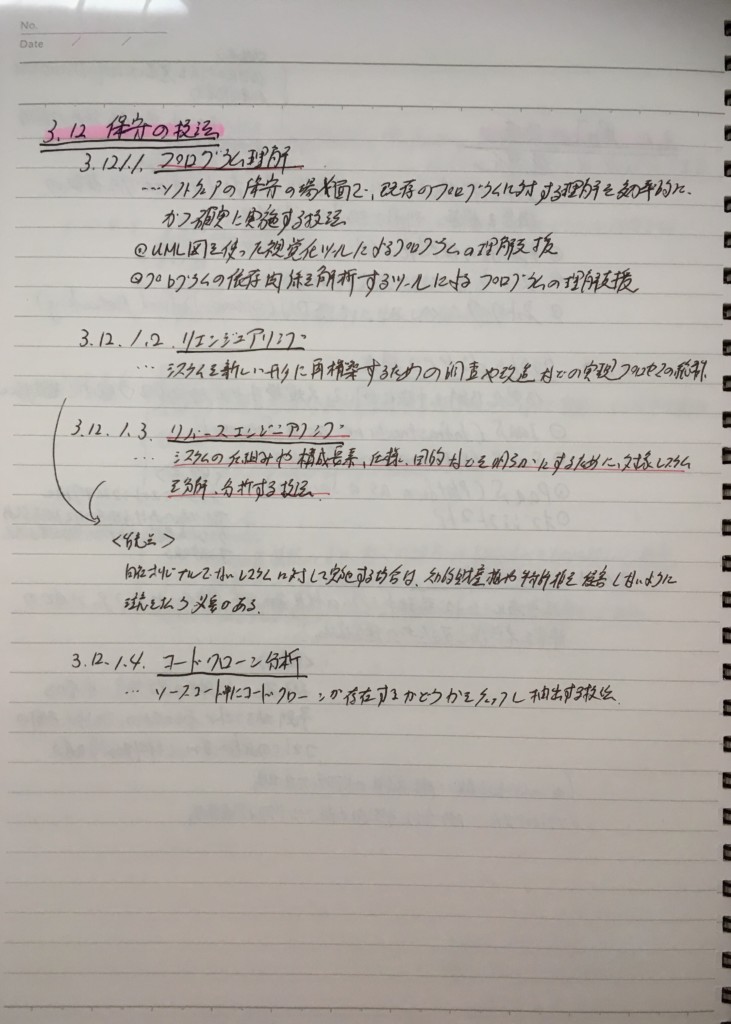 No.
Date
3.12 保守の技法
3.12.1.1. プログラム理解
…ソフトウェアの保守の場面で、既存のプログラムに対する理解を効率的に、
かつ確実に実施する技法
@UML図を使った視覚化ツールによるプログラムの理解支援
@プログラムの依存関係を解析するツールによるプログラムの理解支援
3.12.1.2. リエンジニアリング
… システムを新しい形に再構築するための調査や改造などの実現プロセスの総称.
3.12.1.3. リバースエンジニアリング
… システムの仕組みや構成要素、仕様、目的などを明らかにするために、対象システム
を分解、分析する技法.
自社オリジナルでないシステムに対して実施する場合は、知的財産権や特許権を侵害しないように
注意を払う必要がある.
3.12.1.4. コードクローン分析
… ソースコード中にコードクローンが存在するかどうかをチェックし抽出する技法.